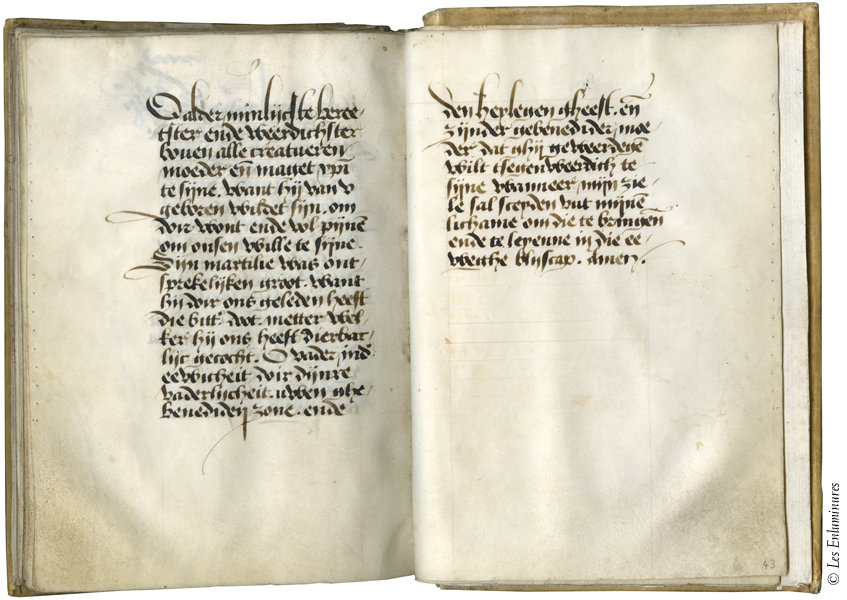 O alder minlijcste beree-
tster ende weerdichster
bouen alle creatueren
moeder en̄ maget xp̄i
te sijne. want hij van v
geboren wildet sijn. om
doir wont ende vol pijnē
om onsen wille te sijne.
Sijn martilie was ont-
sprekelijken groot. want
hij doir ons geleden heeft
die bitt' doot. metter wel-
ker hij ons heeft dierbar-
lijc gecocht. O vader, ind'
eewicheit doir dijnre
vaderlijcheit. uwen ghe-
benedidē zone. ende
den heyleven gheest. en̄
zijnder gebenedider moe-
der dat ghij geweerdegē
wilt tsegenweerdich te
sijne wanneer mijn zie-
le sal sceyden vut mijnē
lichame om die te bringen
ende te leyenne in die ee-
weghe blijscap. Amen.
43
© Les Enluminures